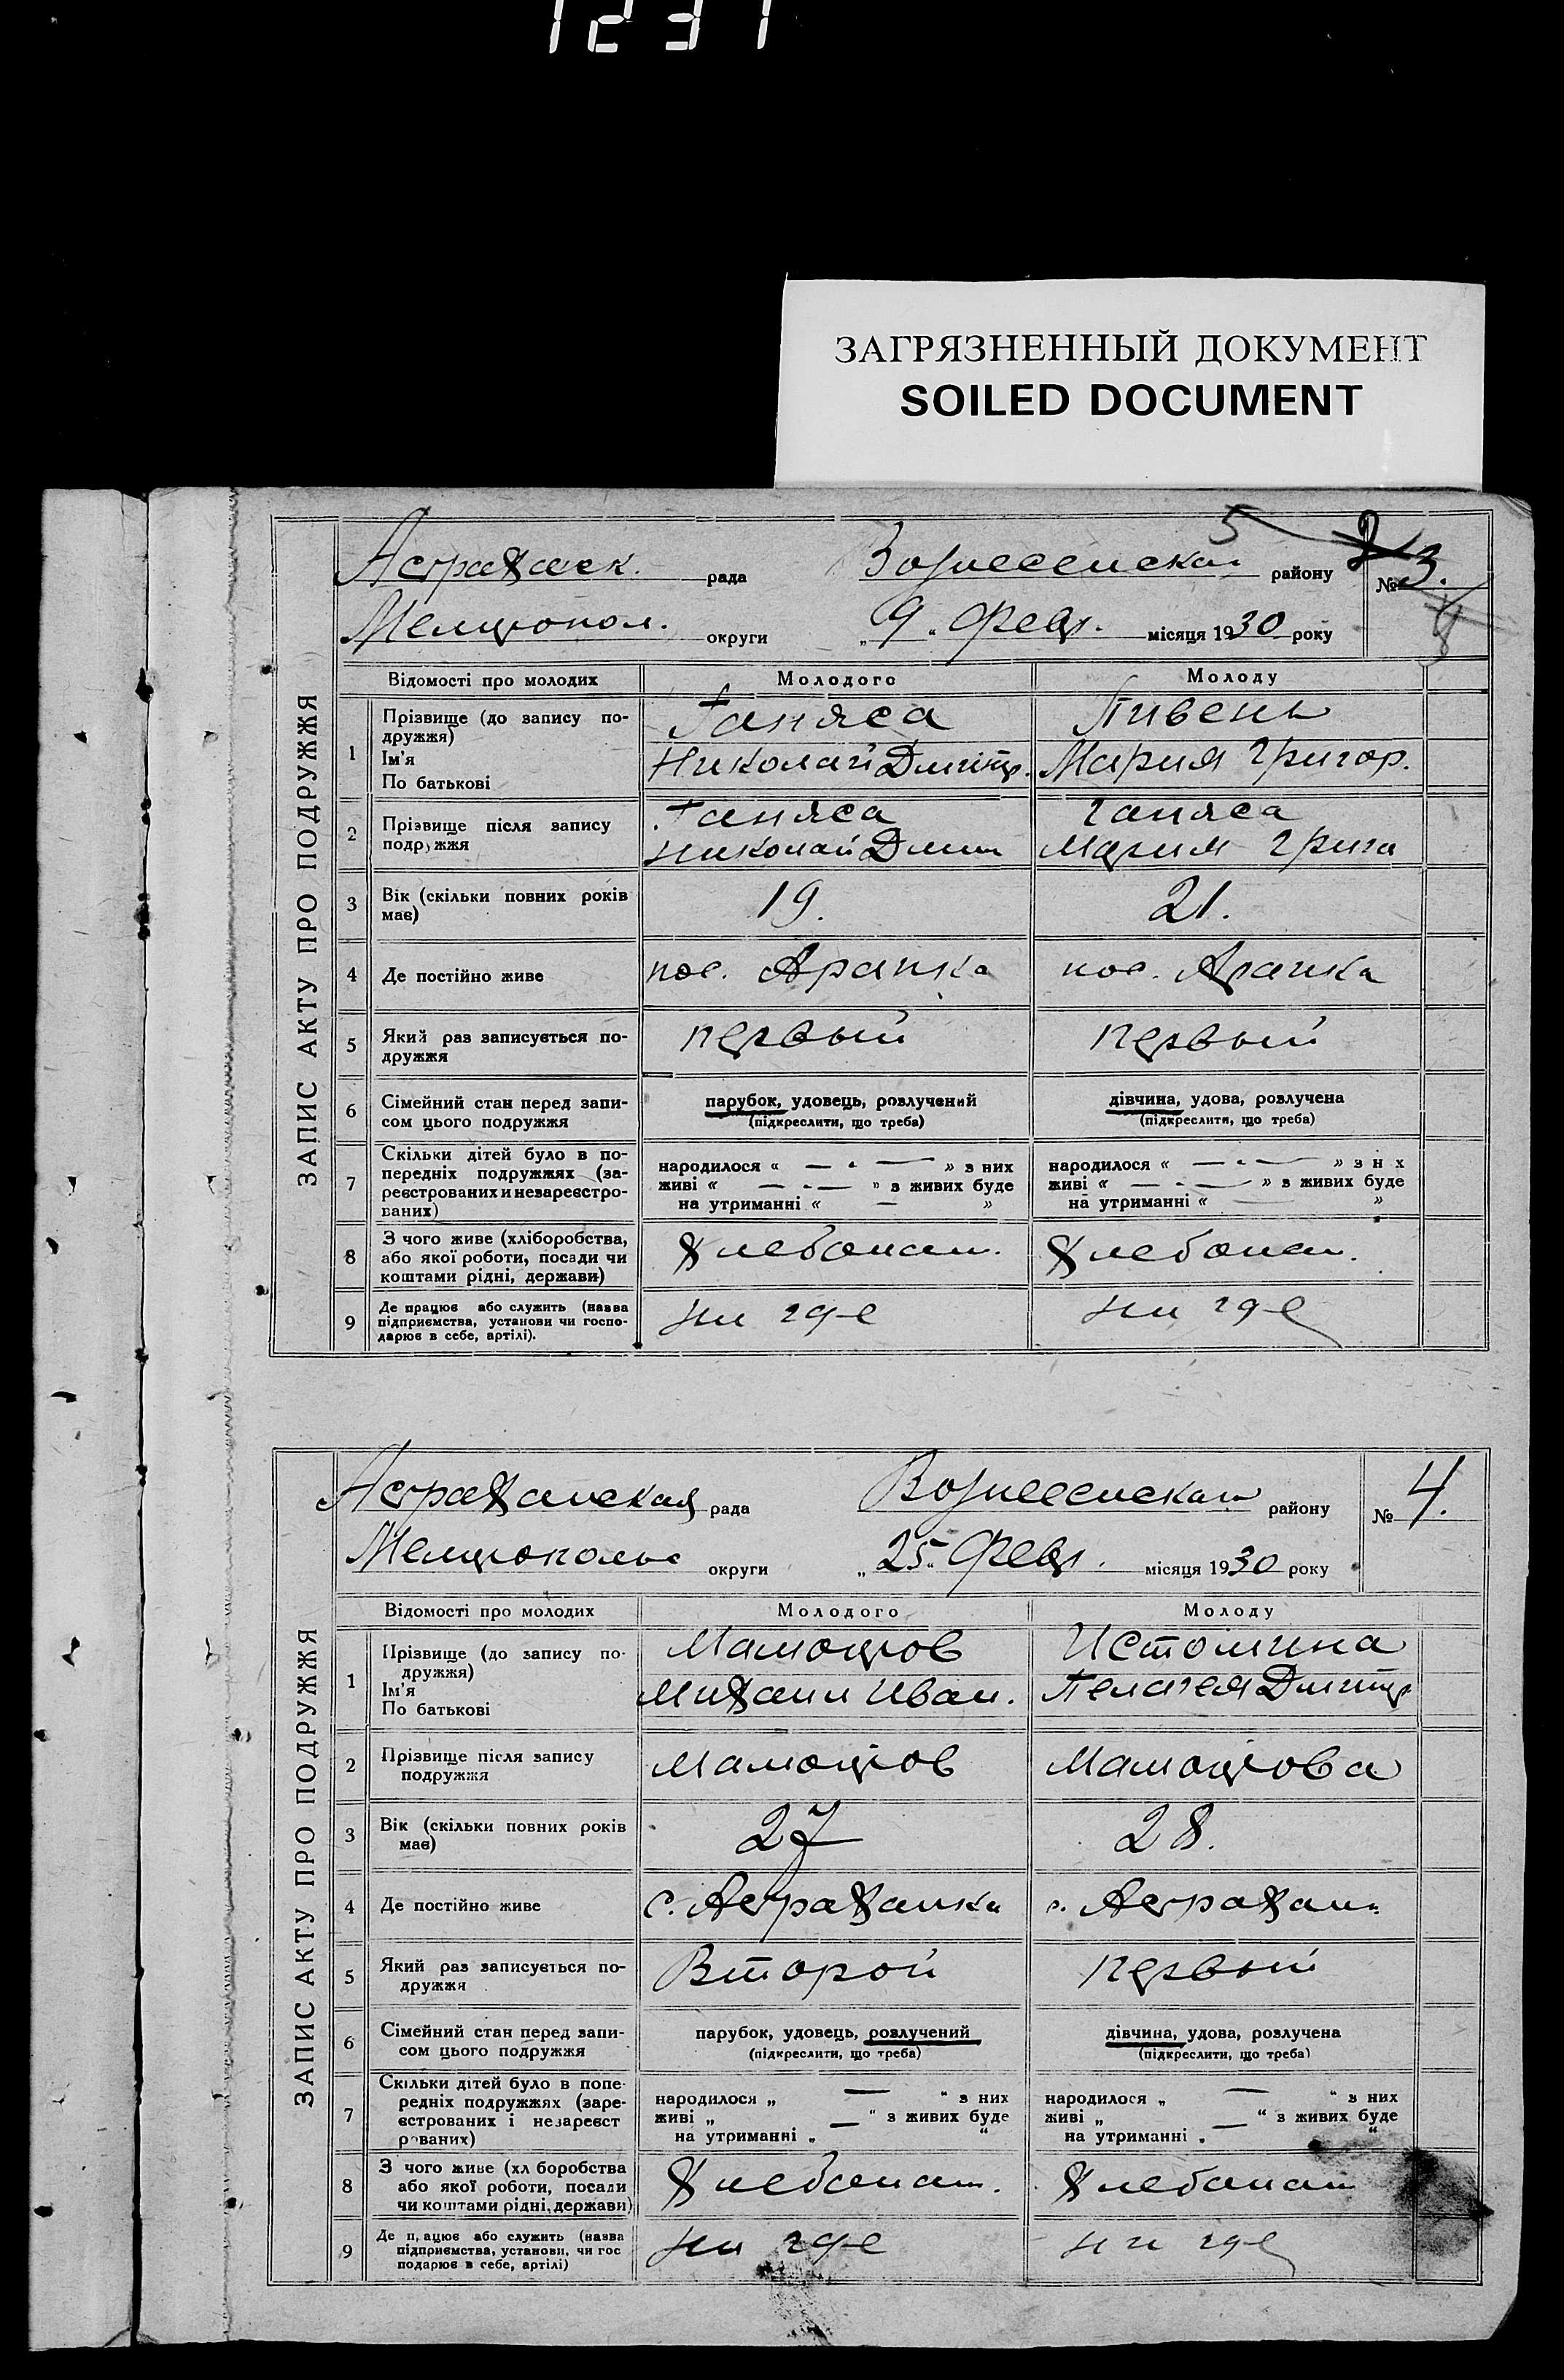 1231
ЗАГРЯЗНЕННЫЙ ДОКУМЕНТ
SOILED DOCUMENT
ЗАПИС АКТУ ПРО ПОДРУЖЖЯ
Астраханск. рада Вознесенская району № 3.
Мелитопол. округи „9“ Февр. місяця 1930 року
Відомості про молодих Молодого Молоду
1 Прізвище (до запису по- Ганяса Пивень
дружжя)
Ім'я Николай Дмитр. Мария Григор.
По батькові
2 Прізвище після запису Ганяса Ганяса
подружжя Николай Дмит Мария Григо
3 Вік (скільки повних років 19. 21.
має)
4 Де постійно живе пос. Арапка пос. Арапка
5 Який раз записується по- первый первый
дружжя
6 Сімейний стан перед запи- парубок, удовець, розлучений дівчина, удова, розлучена
сом цього подружжя (підкреслити, що треба) (підкреслити, що треба)
7 Скільки дітей було в по- народилося « — » з них народилося « — » з н х
передніх подружжях (за- живі « — » з живих буде живі « — » з живих буде
реєстрованих и незареєстро- на утриманні « — » на утриманні « — »
ваних)
8 З чого живе (хліборобства, Хлебопаш. Хлебопаш.
або якої роботи, посади чи
коштами рідні, держави)
9 Де працює або служить (назва ни где ни где
підприємства, установи чи госпо-
дарює в себе, артілі).
ЗАПИС АКТУ ПРО ПОДРУЖЖЯ
Астраханская рада Вознесенская району № 4.
Мелитополь округи „25“ Февр. місяця 1930 року
Відомості про молодих Молодого Молоду
1 Прізвище (до запису по- Мамонтов Истомина
дружжя)
Ім'я Михаил Иван. Пелагея Дмитр
По батькові
2 Прізвище після запису Мамонтов Мамонтова
подружжя
3 Вік (скільки повних років 27 28.
має)
4 Де постійно живе с. Астраханка с. Астрахан
5 Який раз записується по- Второй первый
дружжя
6 Сімейний стан перед запи- парубок, удовець, розлучений дівчина, удова, розлучена
сом цього подружжя (підкреслити, що треба) (підкреслити, що треба)
7 Скільки дітей було в попе- народилося „ — “ з них народилося „ — “ з них
редніх подружжях (заре- живі „ — “ з живих буде живі „ — “ з живих буде
єстрованих і незареєст на утриманні „ “ на утриманні „ “
рованих)
8 З чого живе (хл боробства Хлебопаш. Хлебопаш
або якої роботи, посади
чи коштами рідні, держави)
9 Де п ацює або служить (назва ни где ни где
підприємства, установи, чи гос
подарює в себе, артілі)